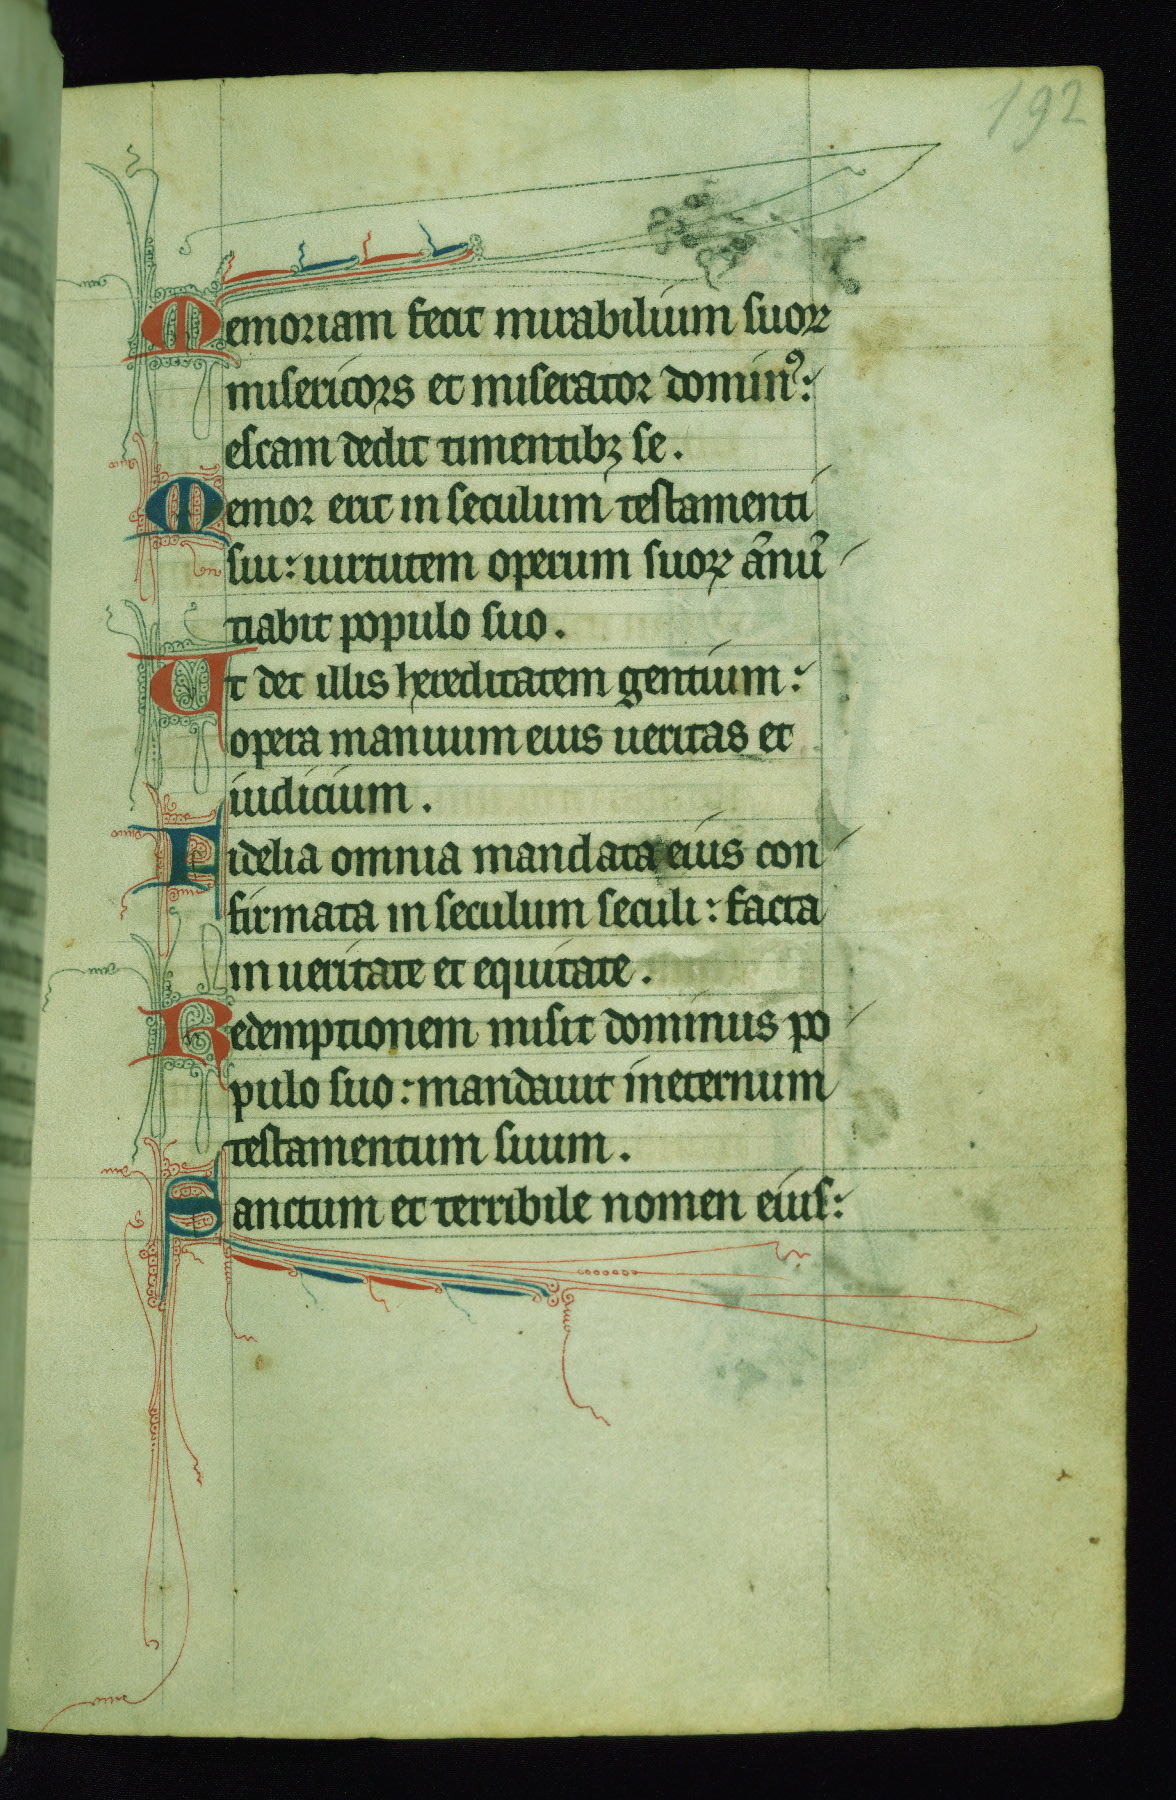 192
Memoriam fecit mirabilium suoꝝ
misericors et miserator dominꝰ:
escam dedit timentibꝫ se.
Memor erit in seculum testamenti
sui: uirtutem operum suoꝝ ānū
tiabit populo suo.
Ut det illis hereditatem gentium:
opera manuum eius ueritas et
iudicium.
Fidelia omnia mandata eius con
firmata in seculum seculi: facta
in ueritate et equitate.
Redemptionem misit dominus po
pulo suo: mandauit in eternum
testamentum suum.
Sanctum et terribile nomen eius: